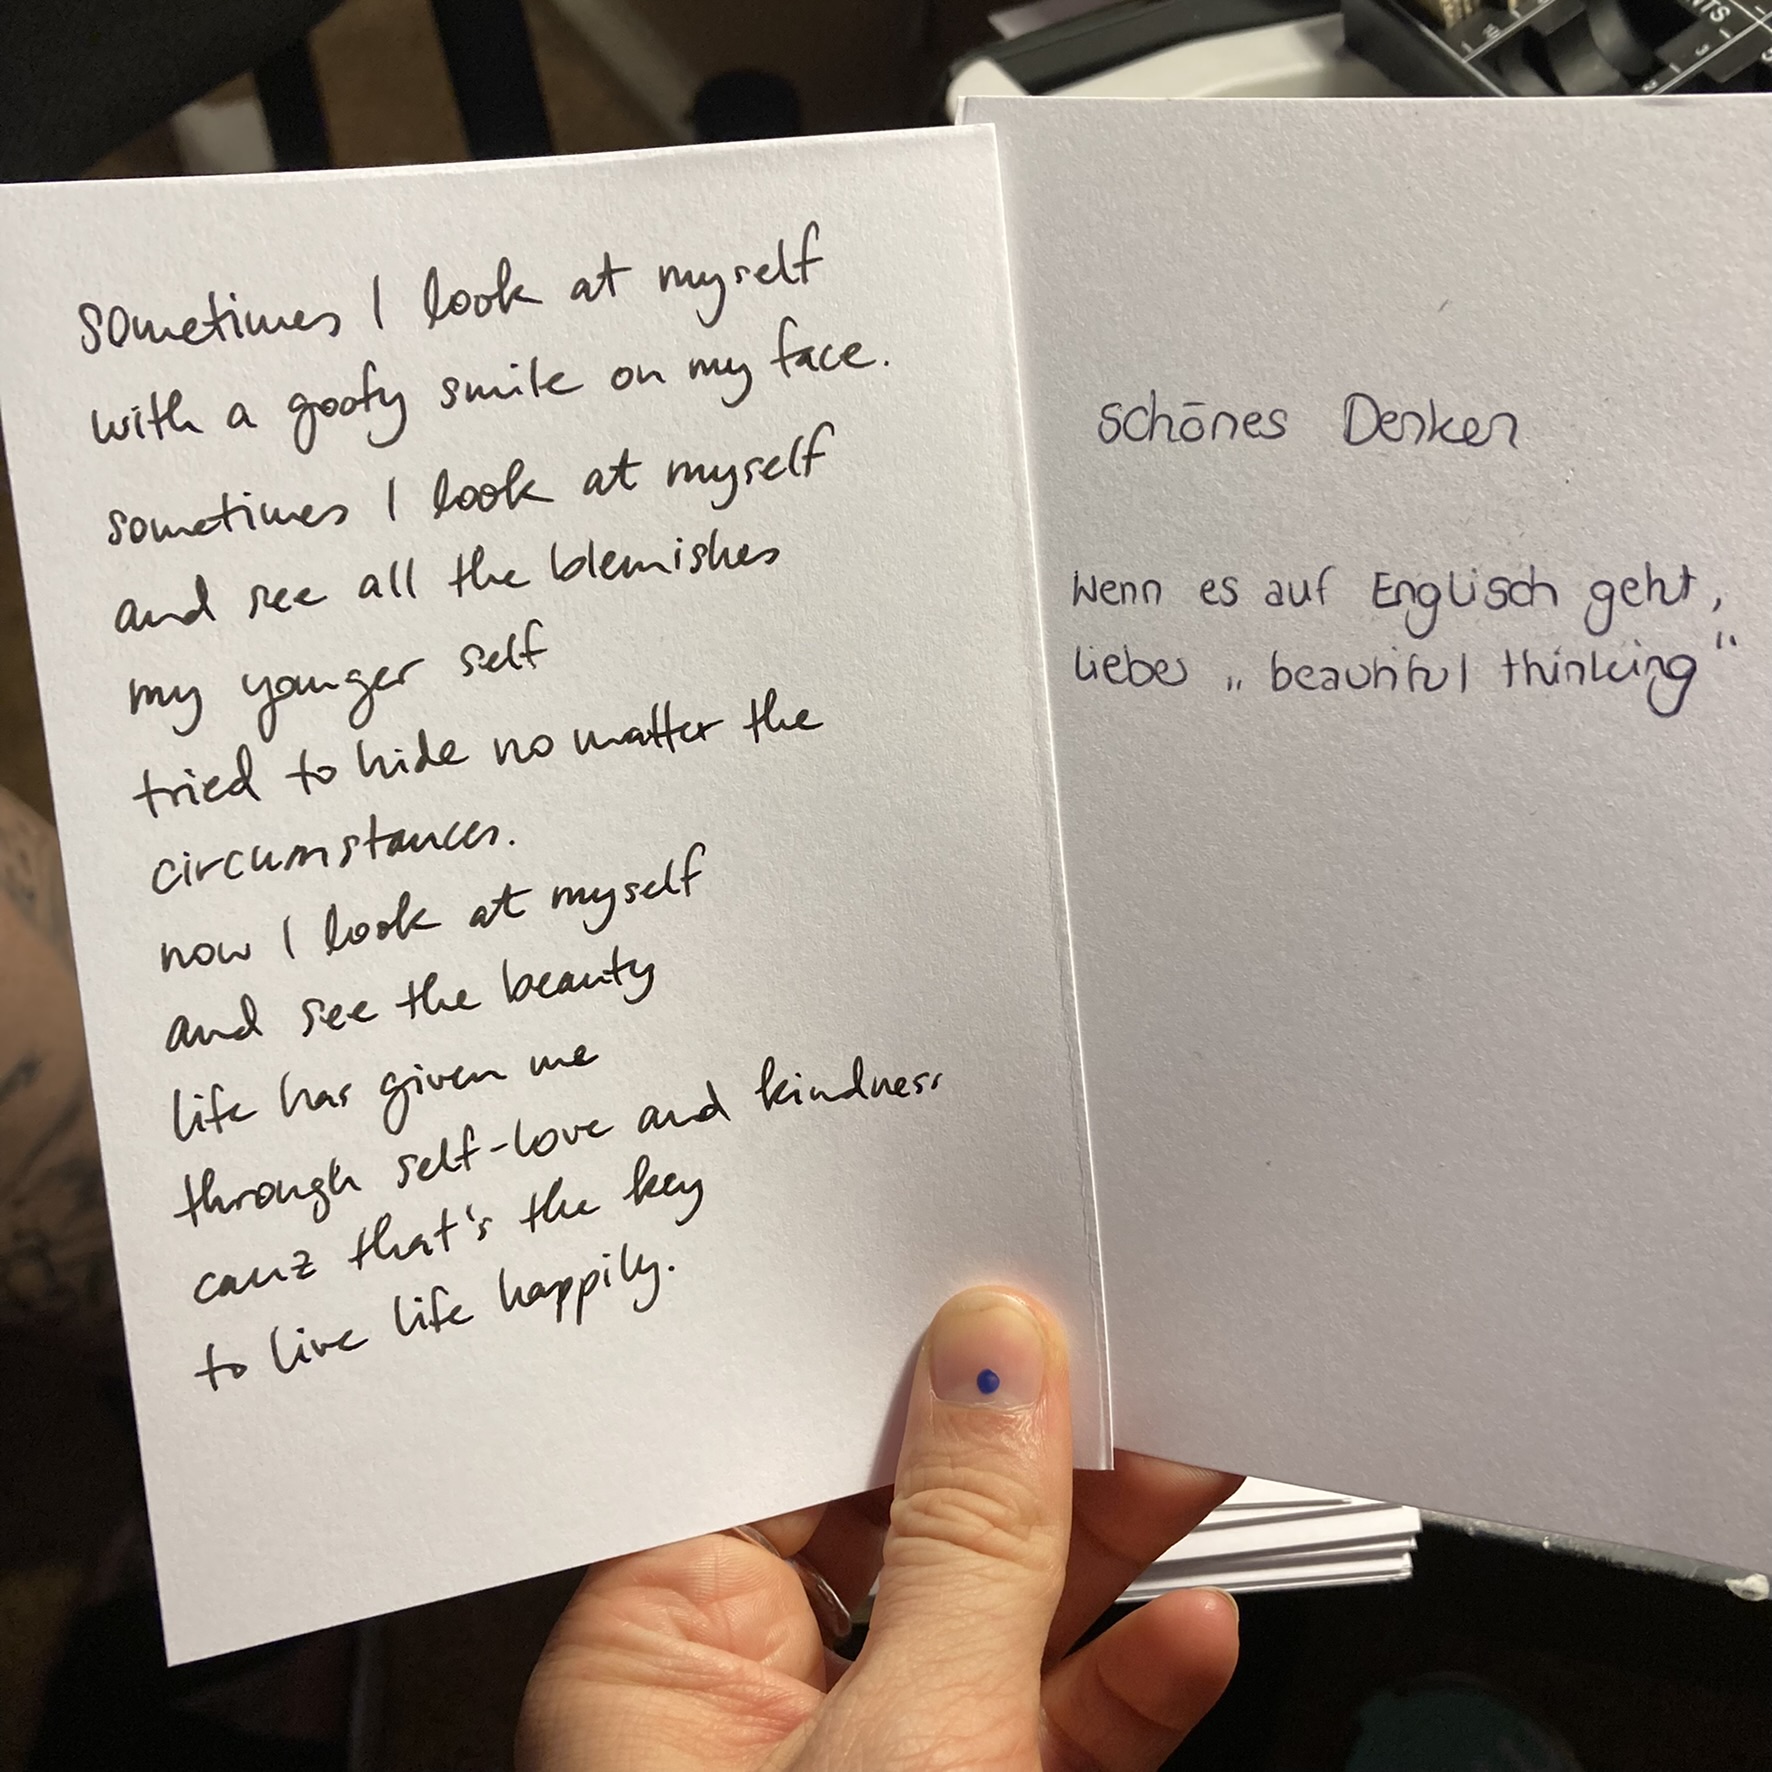 sometimes I look at myself
with a goofy smile on my face.
sometimes I look at myself
and see all the blemishes
my younger self
tried to hide no matter the
circumstances.
now I look at myself
and see the beauty
life has given me
through self-love and kindness
cauz that's the key
to live life happily.
schönes Denken
Wenn es auf Englisch geht,
liebes „beautiful thinking“